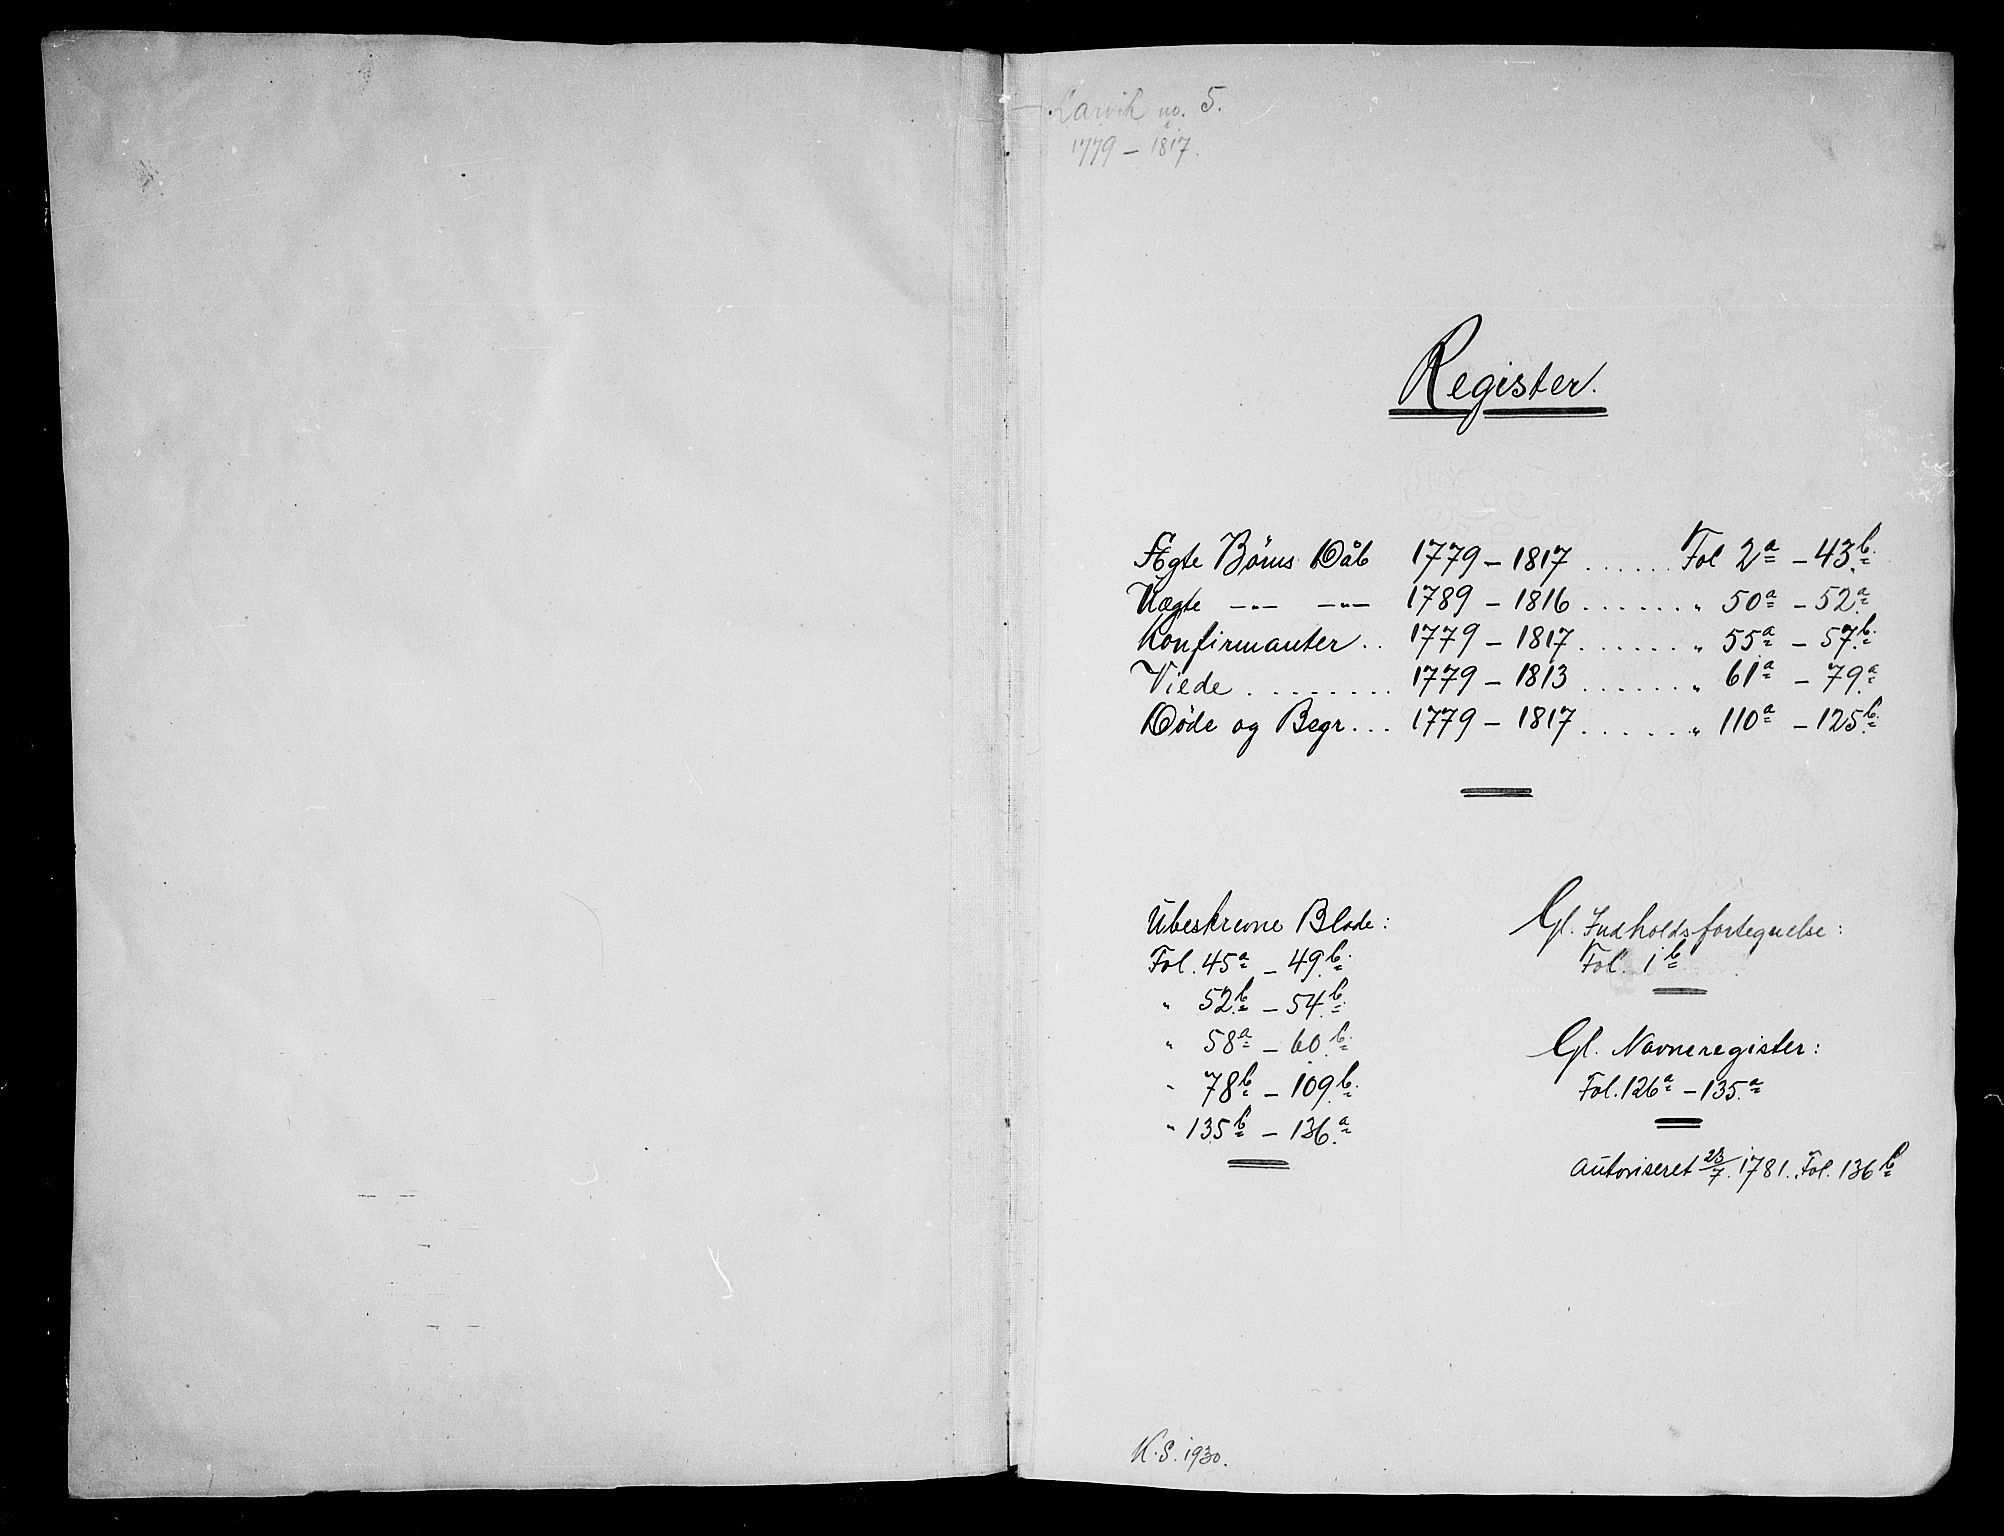 Larvik no. 5.
1779 – 1817.
Register.
Ægte Børns Dåb 1779 – 1817 ...... Fol 2a – 43b.
Uægte –"– –"– 1789 – 1816 ....... " 50a – 52a
Konfirmanter .. 1779 – 1817 ....... " 55a – 57b.
Viede ......... 1779 – 1813 ....... " 61a – 79a
Døde og Begr... 1779 – 1817 ....... " 110a – 125b.
Ubeskrevne Blade:
Fol. 45a – 49b.
" 52b – 54b.
" 58a – 60b.
" 78b – 109b.
" 135b – 136a
Gl. Indholdsfortegnelse:
Fol. 1b
Gl. Navneregister:
Fol. 126a – 135a
Autoriseret 23/7. 1781. Fol. 136b
K.S. 1930.